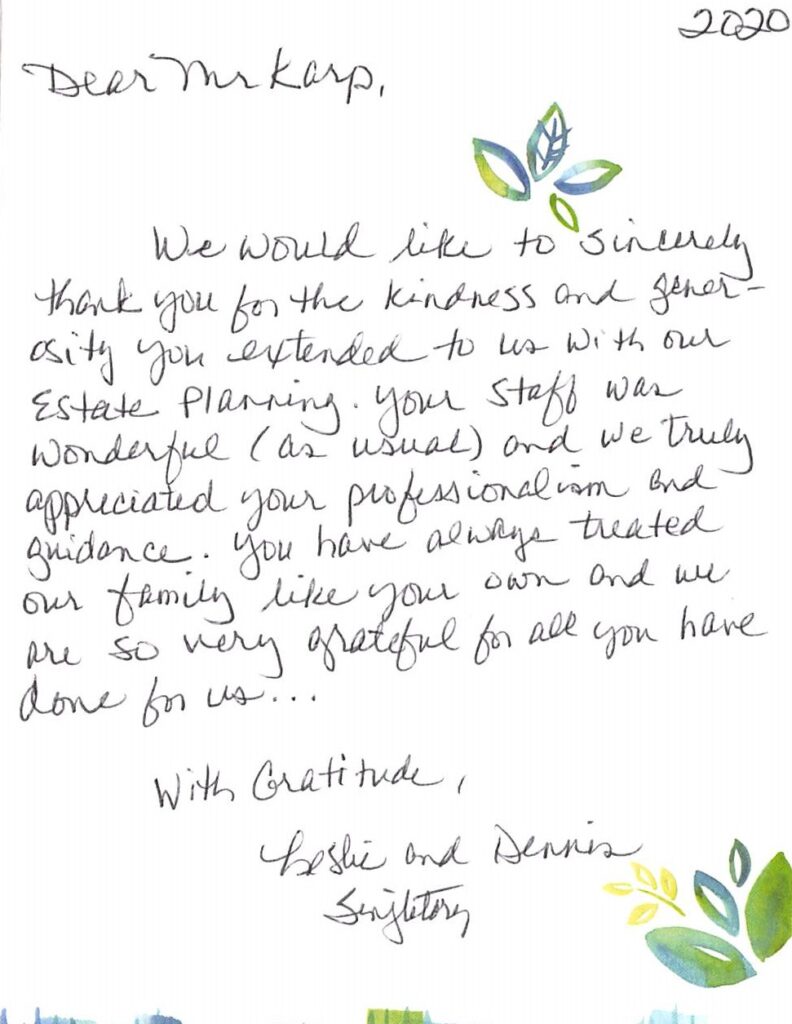 2020
Dear Mr Karp,
We would like to sincerely
thank you for the kindness and gener-
osity you extended to us with our
Estate Planning. Your staff was
wonderful (as usual) and we truly
appreciated your professionalism and
guidance. You have always treated
our family like your own and we
are so very grateful for all you have
done for us...
With Gratitude,
Leslie and Dennis
Singletary